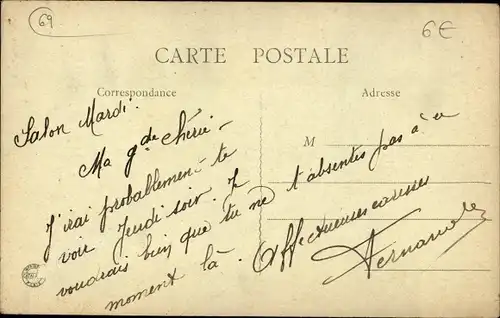 69
6€
CARTE POSTALE
Correspondance
Adresse
M
Salon Mardi.
Ma gde chérie -
J'irai probablement te
voir Jeudi soir. Je
voudrais bien que tu ne t'absentes pas à ce
moment là. Affectueuses caresses
Fernande